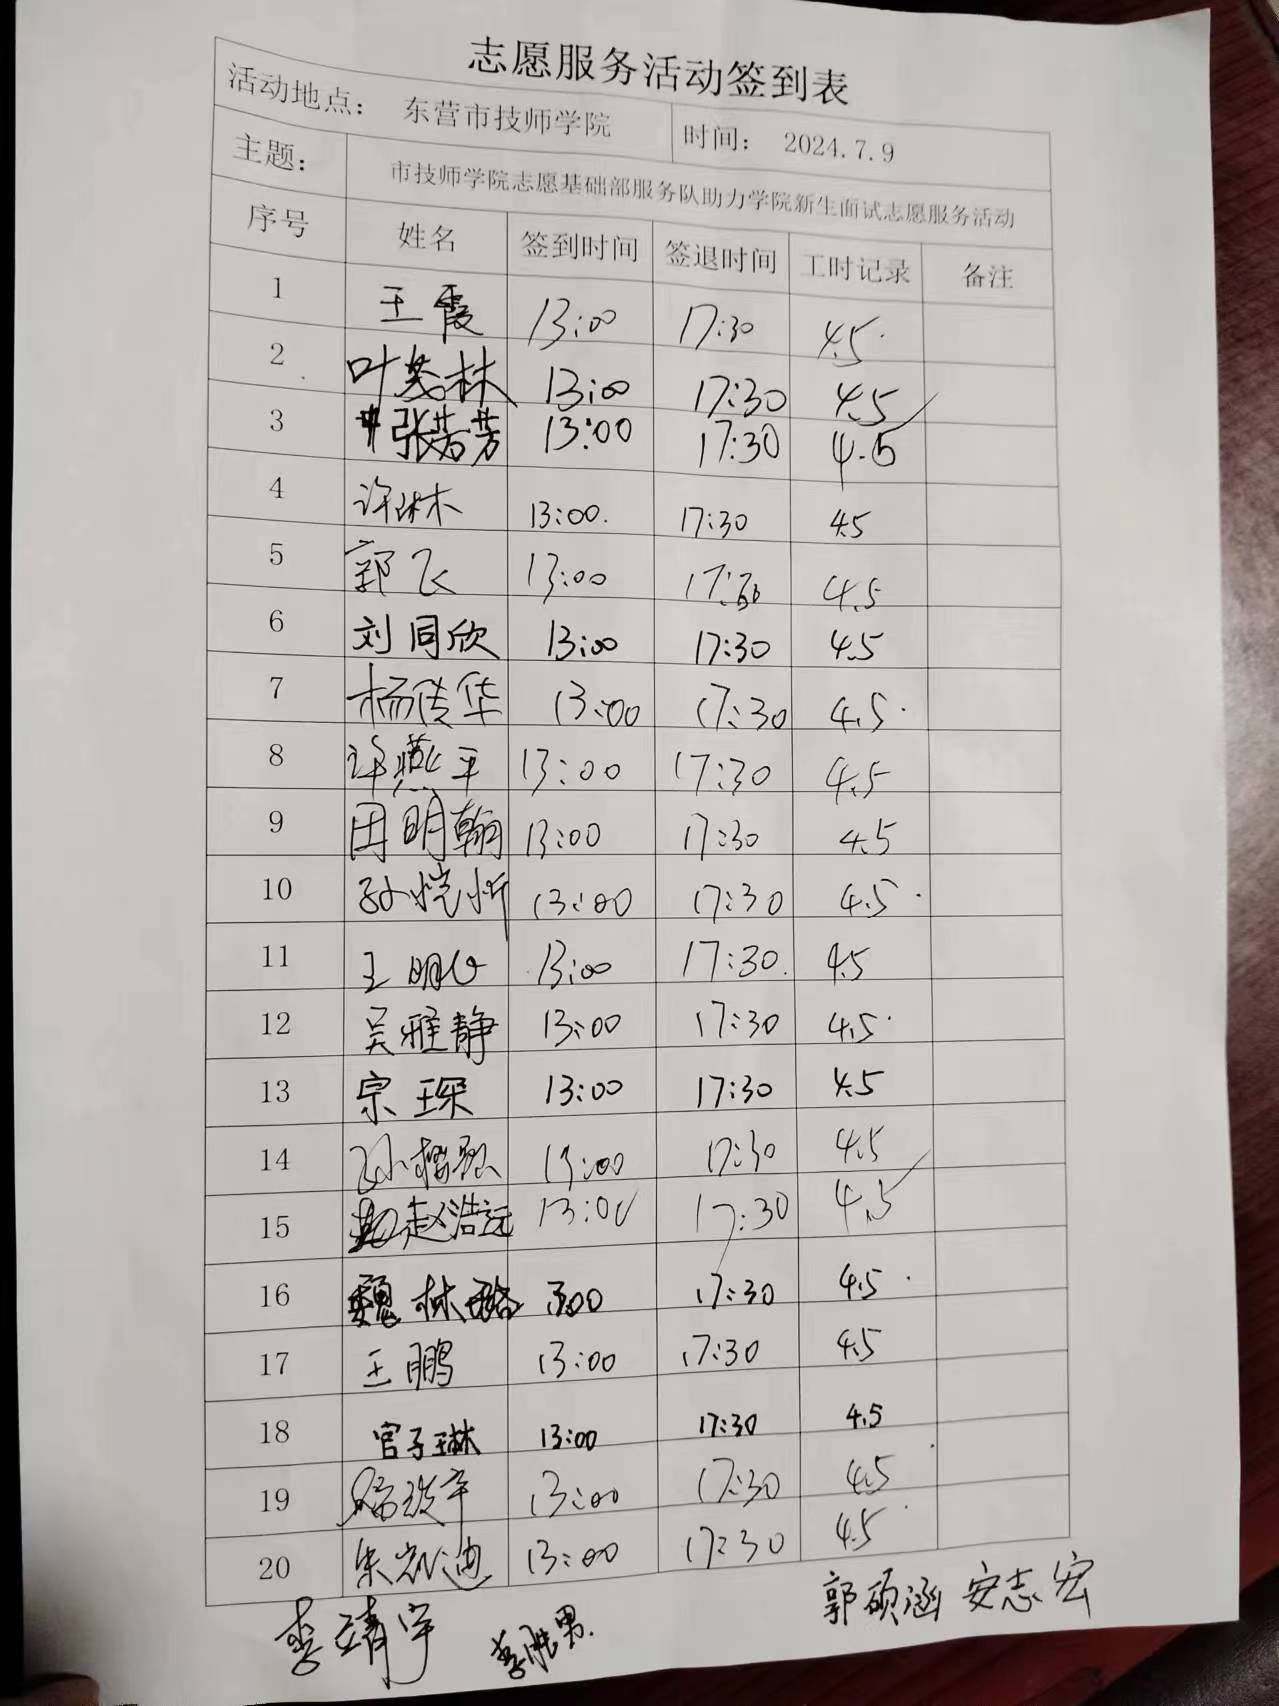 志愿服务活动签到表
活动地点： 东营市技师学院 时间： 2024.7.9
主题： 市技师学院志愿基础部服务队助力学院新生面试志愿服务活动
序号 姓名 签到时间 签退时间 工时记录 备注
1 王霞 13:00 17:30 4.5
2 叶茂林 13:00 17:30 4.5
3 张若芳 13:00 17:30 4.5
4 许琳木 13:00 17:30 4.5
5 郭飞 13:00 17:30 4.5
6 刘同欣 13:00 17:30 4.5
7 杨传华 13:00 17:30 4.5
8 许燕平 13:00 17:30 4.5
9 田明翰 13:00 17:30 4.5
10 13:00 17:30 4.5
11 13:00 17:30 4.5
12 吴雅静 13:00 17:30 4.5
13 宗琛 13:00 17:30 4.5
14 13:00 17:30 4.5
15 赵浩远 13:00 17:30 4.5
16 魏林璐 13:00 17:30 4.5
17 王鹏 13:00 17:30 4.5
18 官子琳 13:00 17:30 4.5
19 13:00 17:30 4.5
20 13:00 17:30 4.5
李靖宇 李胜男 郭硕涵 安志宏